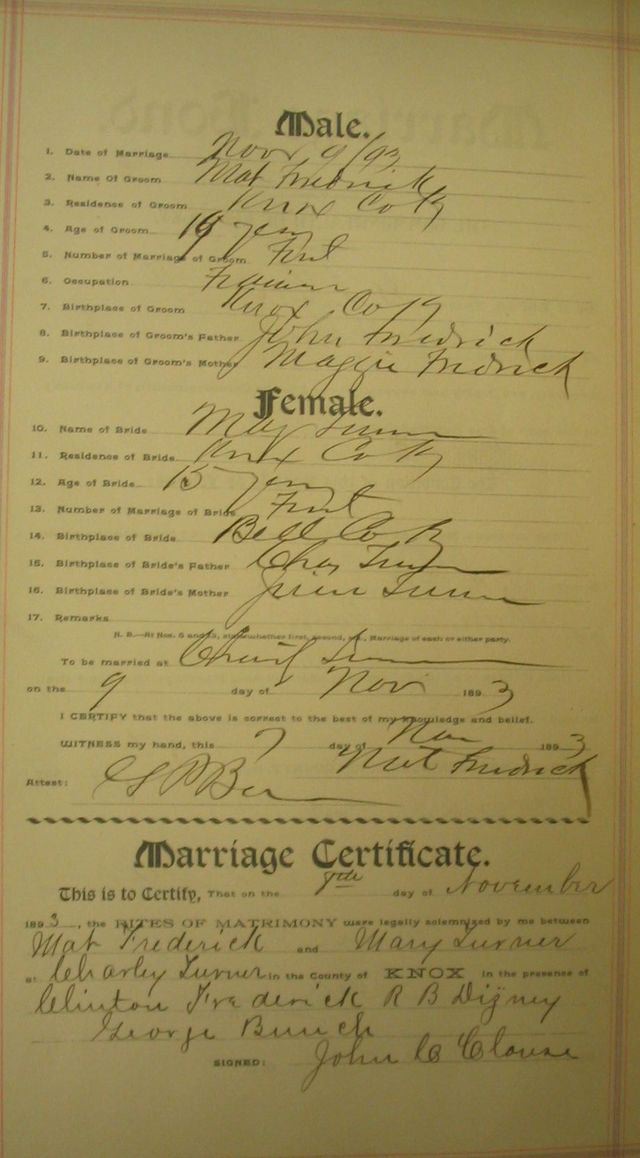 Male.
1. Date of Marriage Nov 9/93
2. Name Of Groom Mat Fredrick
3. Residence of Groom Knox Co Ky
4. Age of Groom 19 years
5. Number of Marriage of Groom First
6. Occupation Farmer
7. Birthplace of Groom Knox Co Ky
8. Birthplace of Groom's Father John Fredrick
9. Birthplace of Groom's Mother Maggie Fredrick
Female.
10. Name of Bride Mary Turner
11. Residence of Bride Knox Co Ky
12. Age of Bride 15 years
13. Number of Marriage of Bride First
14. Birthplace of Bride Bell Co Ky
15. Birthplace of Bride's Father Chas Turner
16. Birthplace of Bride's Mother Turner
17. Remarks
N. B.—At Nos. 5 and 13, state whether first, second, etc., Marriage of each or either party.
To be married at Turner
on the 9 day of Nov 1893
I CERTIFY that the above is correct to the best of my knowledge and belief.
WITNESS my hand, this 7 day of Nov 1893
Mat Fredrick
Attest:
Marriage Certificate.
This is to Certify, That on the 9th day of November
1893, the RITES OF MATRIMONY were legally solemnized by me between
Mat Frederick and Mary Turner
at Charley Turner in the County of KNOX in the presence of
Clinton Frederick R B Digney
George Bunch
SIGNED: John C Clouse